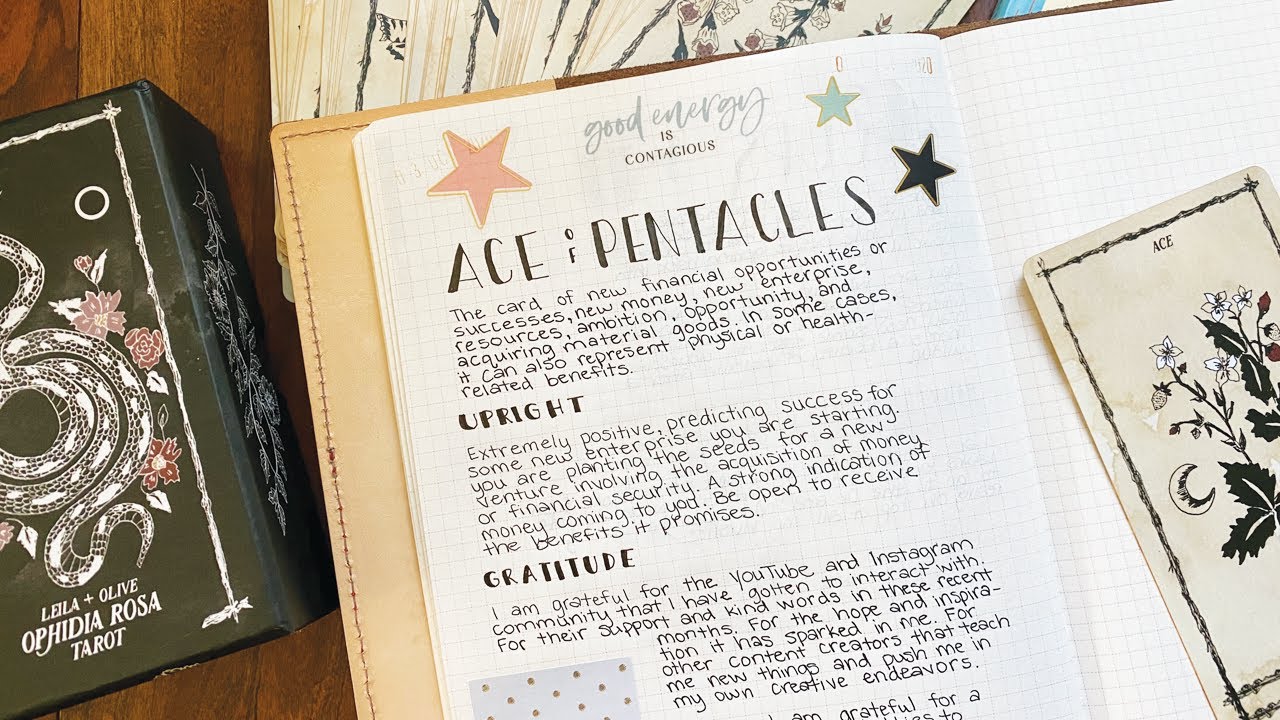 good energy
IS
CONTAGIOUS
ACE OF PENTACLES
The card of new financial opportunities or
successes, new money, new enterprise,
resources, ambition, opportunity, and
acquiring material goods. In some cases,
it can also represent physical or health-
related benefits.
UPRIGHT
Extremely positive, predicting success for
some new enterprise you are starting.
You are planting the seeds for a new
venture involving the acquisition of money
or financial security. A strong indication of
money coming to you. Be open to receive
the benefits it promises.
GRATITUDE
I am grateful for the YouTube and Instagram
community that I have gotten to interact with.
For their support and kind words in these recent
months. For the hope and inspira-
tion it has sparked in me. For
other content creators that teach
me new things and push me in
my own creative endeavors.
I am grateful for a
LEILA + OLIVE
OPHIDIA ROSA
TAROT
ACE